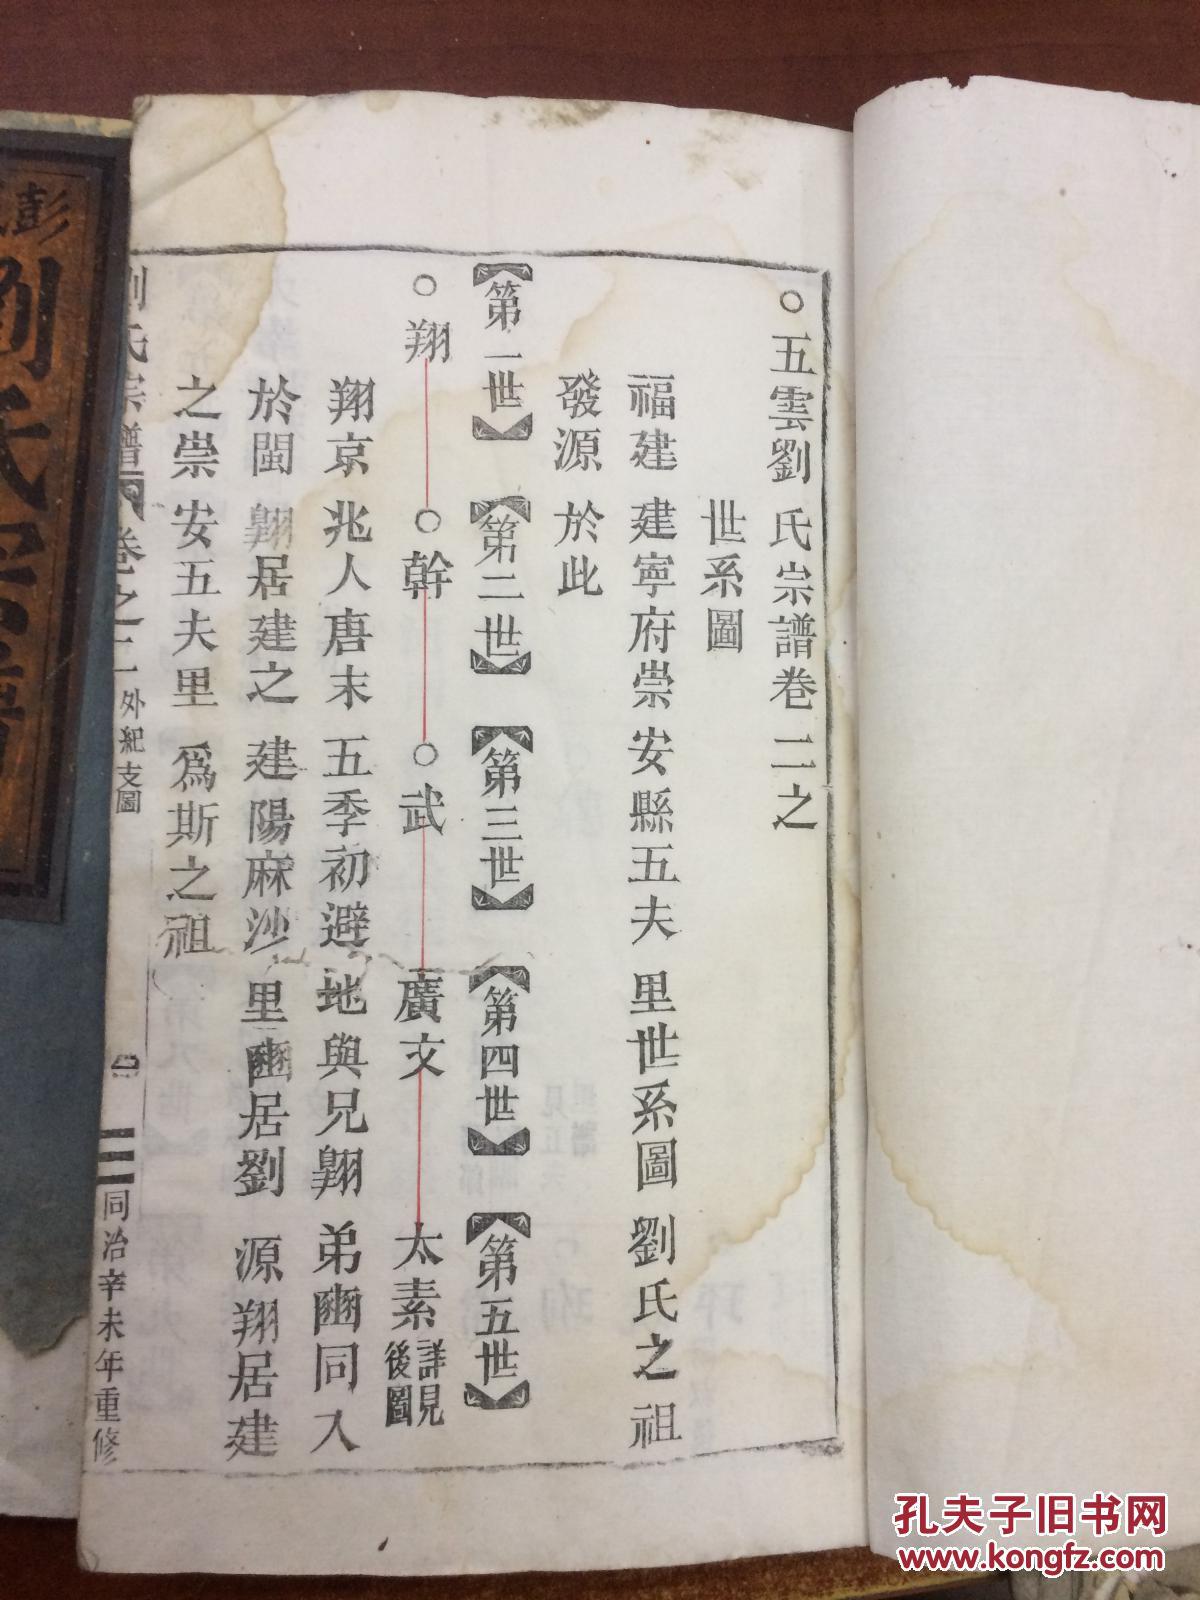 ○五雲劉氏宗譜卷二之
世系圖
福建建寧府崇安縣五夫里世系圖劉氏之祖
發源於此
【第一世】【第二世】【第三世】【第四世】【第五世】
○翔○幹○武廣文太素詳見後圖
翔京兆人唐末五季初避地與兄翶弟豳同入
於閩翶居建之建陽麻沙里豳居劉源翔居建
之崇安五夫里為斯之祖
劉氏宗譜卷之二外紀支圖
同治辛未年重修
彭
劉氏宗譜
孔夫子旧书网
www.kongfz.com